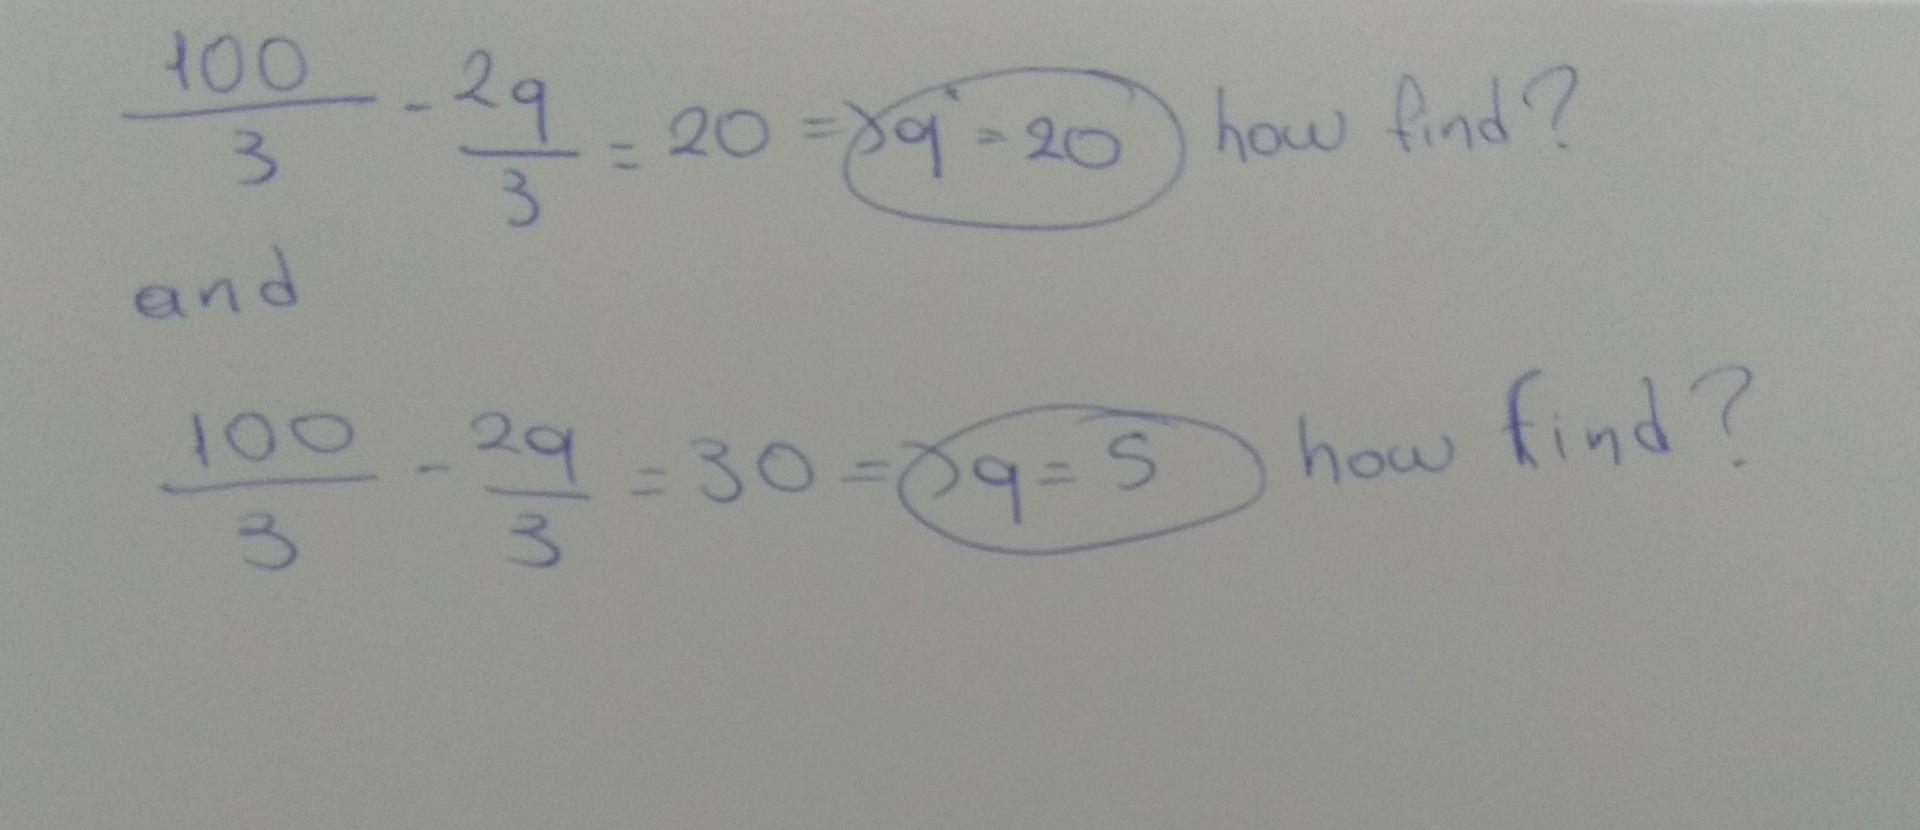 100/3 - 2q/3 = 20 => q = 20 how find?
and
100/3 - 2q/3 = 30 => q = 5 how find?